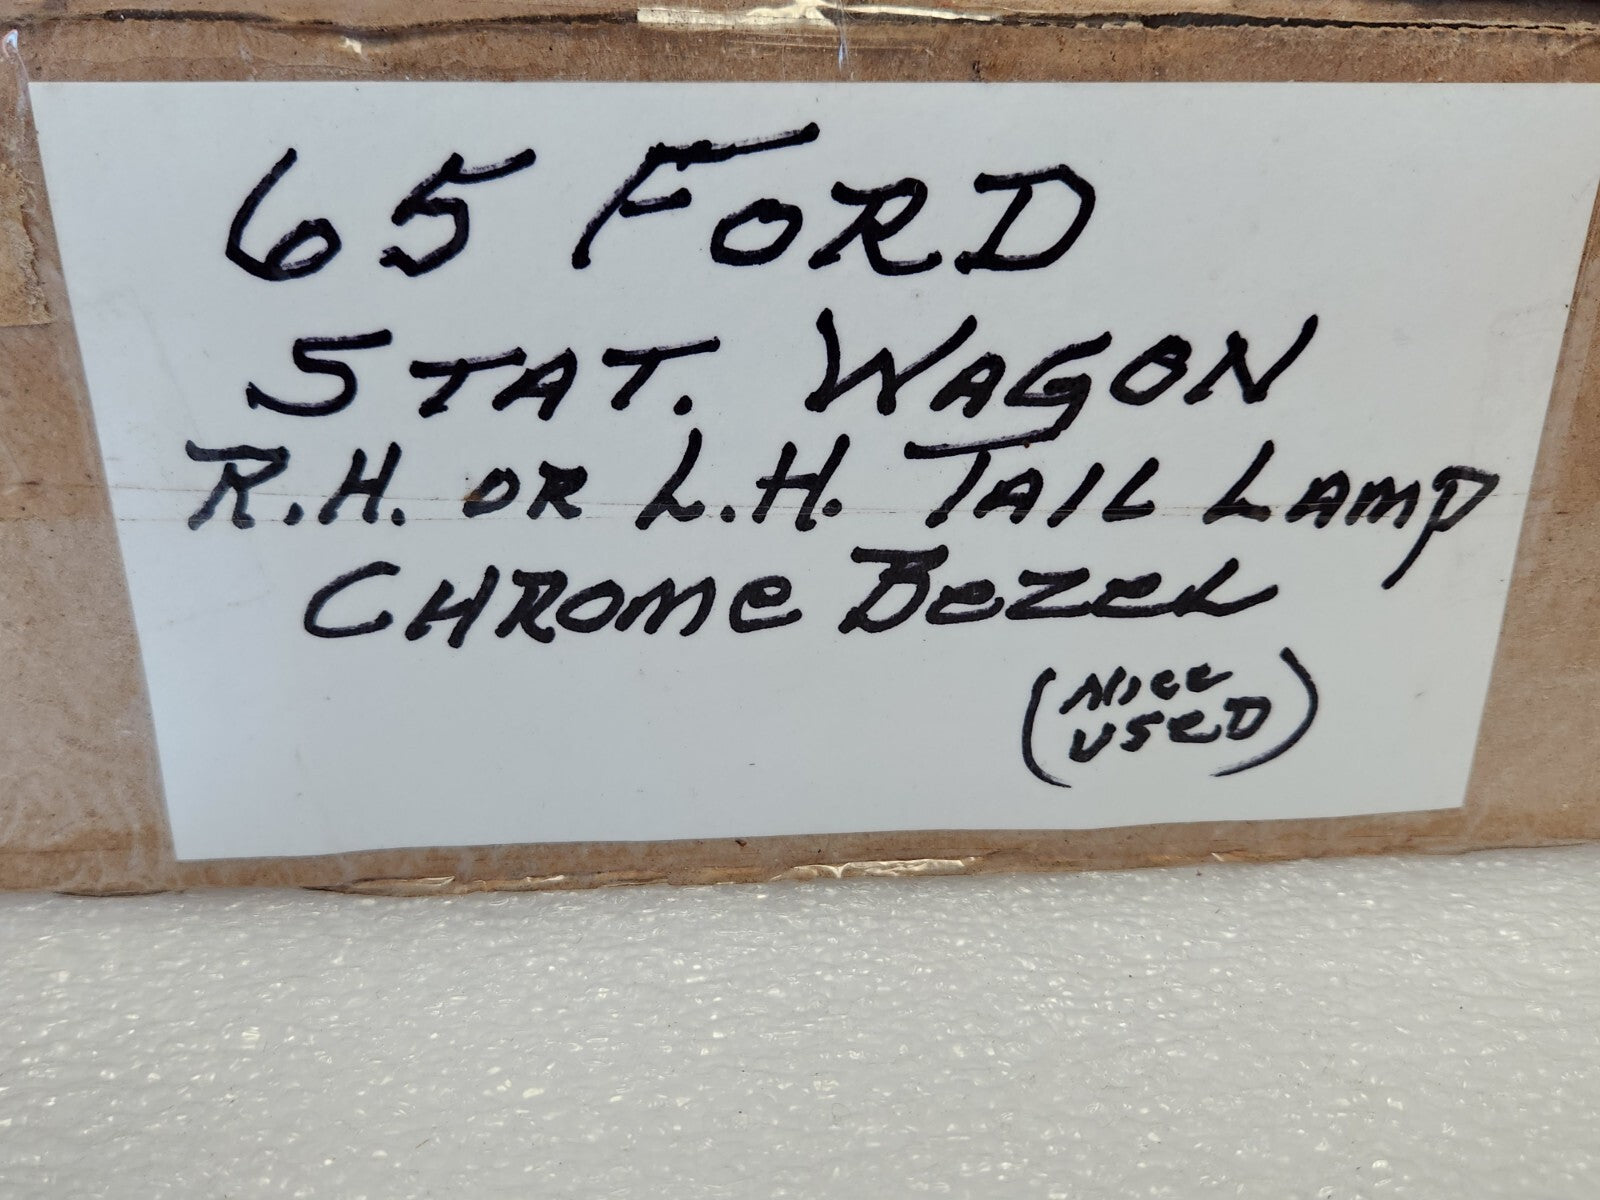 65 FORD
STAT. WAGON
R.H. OR L.H. TAIL LAMP
CHROME BEZEL
(NICE
USED)